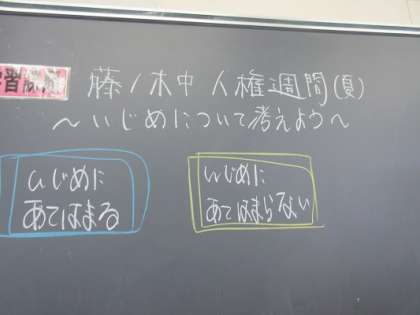 学習課題
藤ノ木中 人権週間(夏)
～いじめについて考えよう～
いじめに
あてはまる
いじめに
あてはまらない